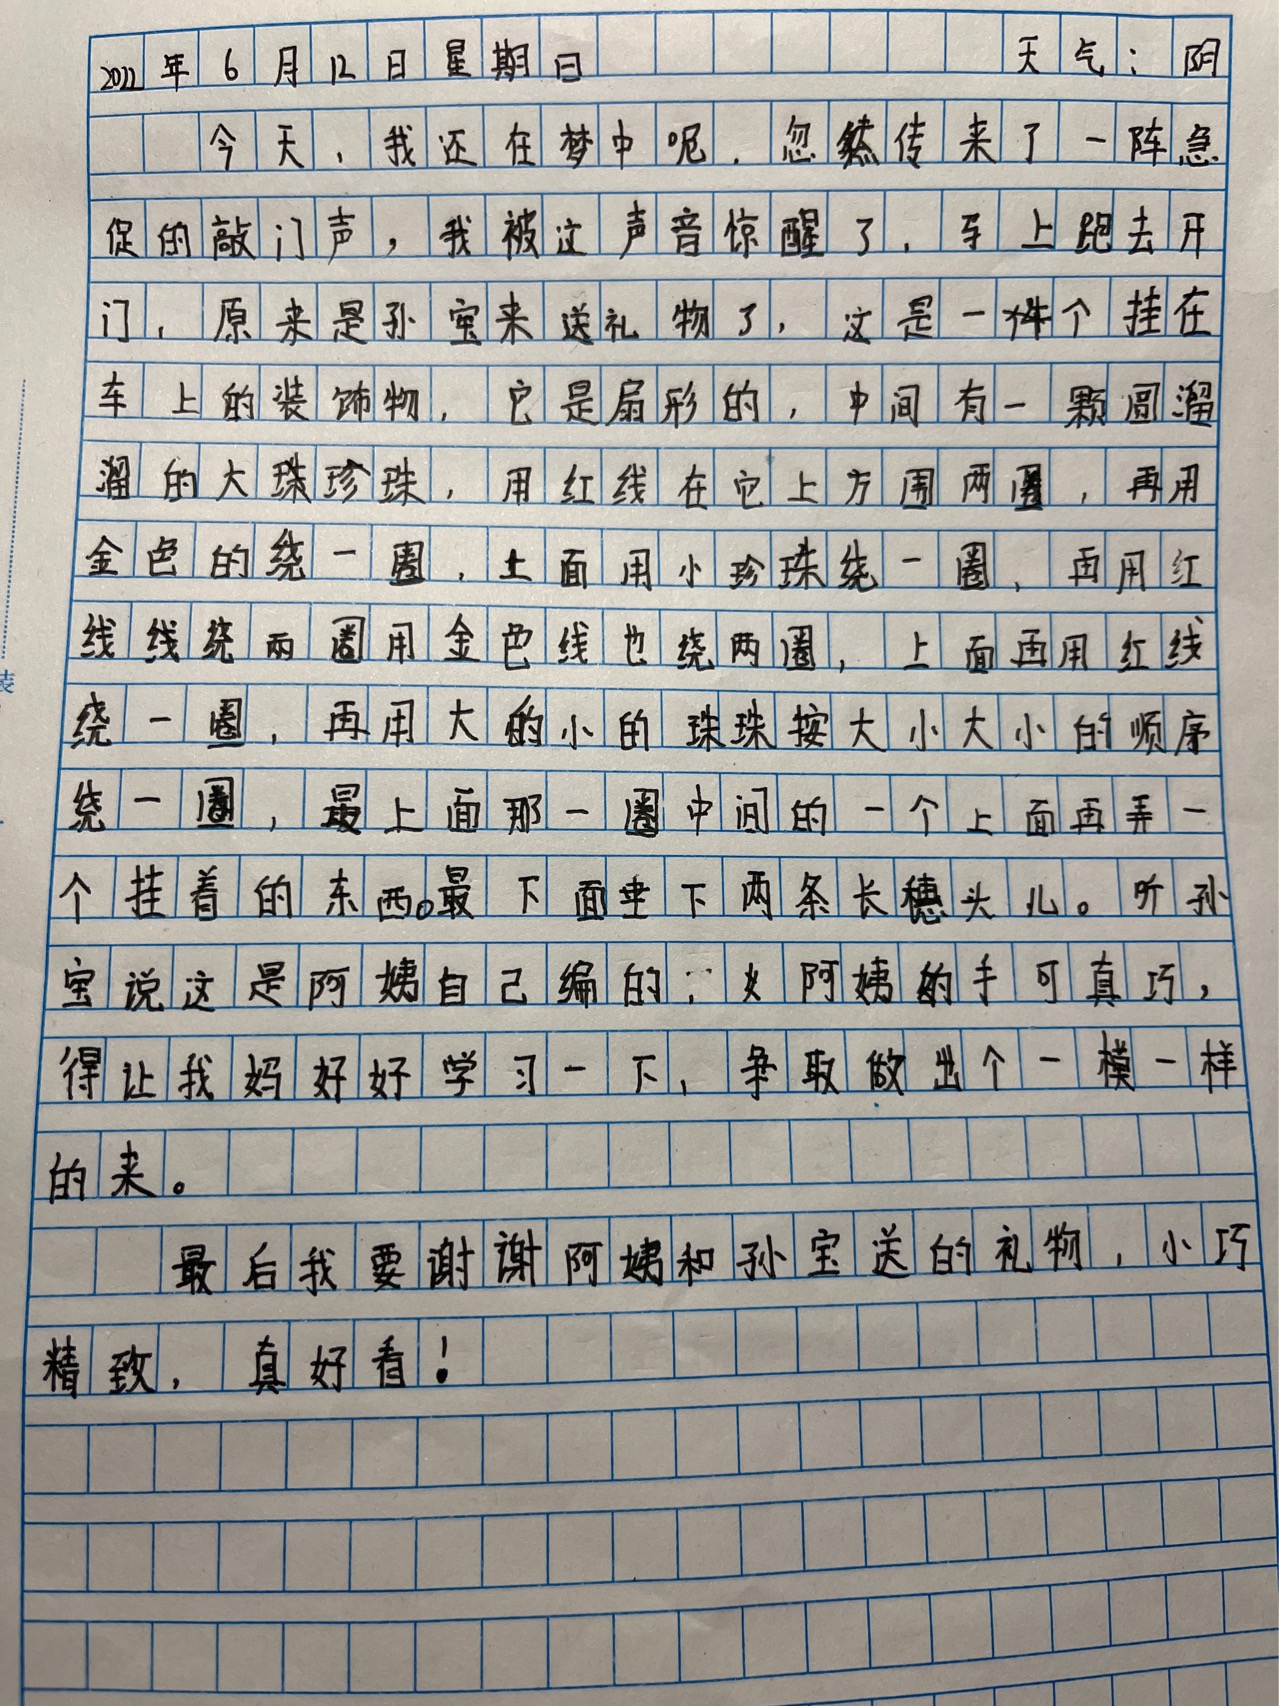 2022年6月12日星期日 天气：阴
今天，我还在梦中呢，忽然传来了一阵急
促的敲门声，我被这声音惊醒了，车上跑去开
门，原来是孙宝来送礼物了，这是一件个挂在
车上的装饰物，它是扇形的，中间有一颗圆溜
溜的大珠珍珠，用红线在它上方围两圈，再用
金色的绕一圈，上面用小珍珠绕一圈，再用红
线线绕两圈用金色线也绕两圈，上面再用红线
绕一圈，再用大的小的珠珠按大小大小的顺序
绕一圈，最上面那一圈中间的一个上面再弄一
个挂着的东西。最下面垂下两条长穗头儿。听孙
宝说这是阿姨自己编的，阿姨的手可真巧，
得让我妈好好学习一下，争取做出个一模一样
的来。
最后我要谢谢阿姨和孙宝送的礼物，小巧
精致，真好看！
装